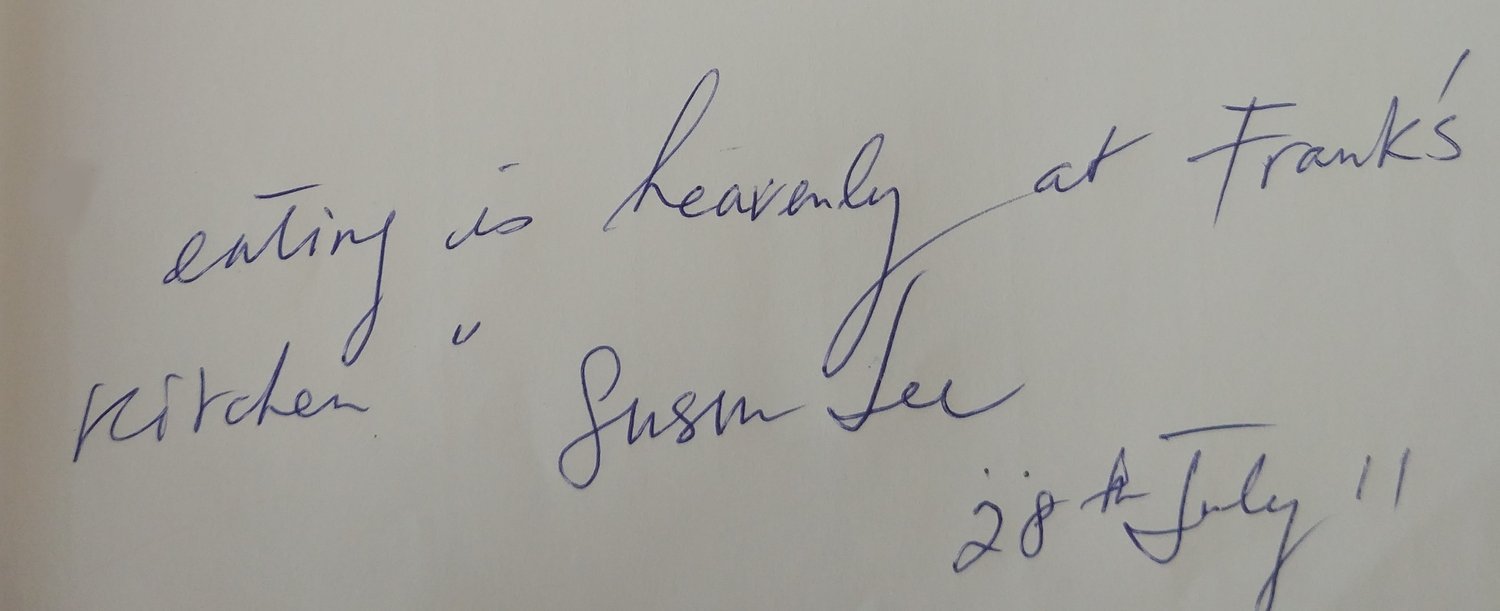 eating is heavenly at Frank's
Kitchen " Susan Lee
28th July 11